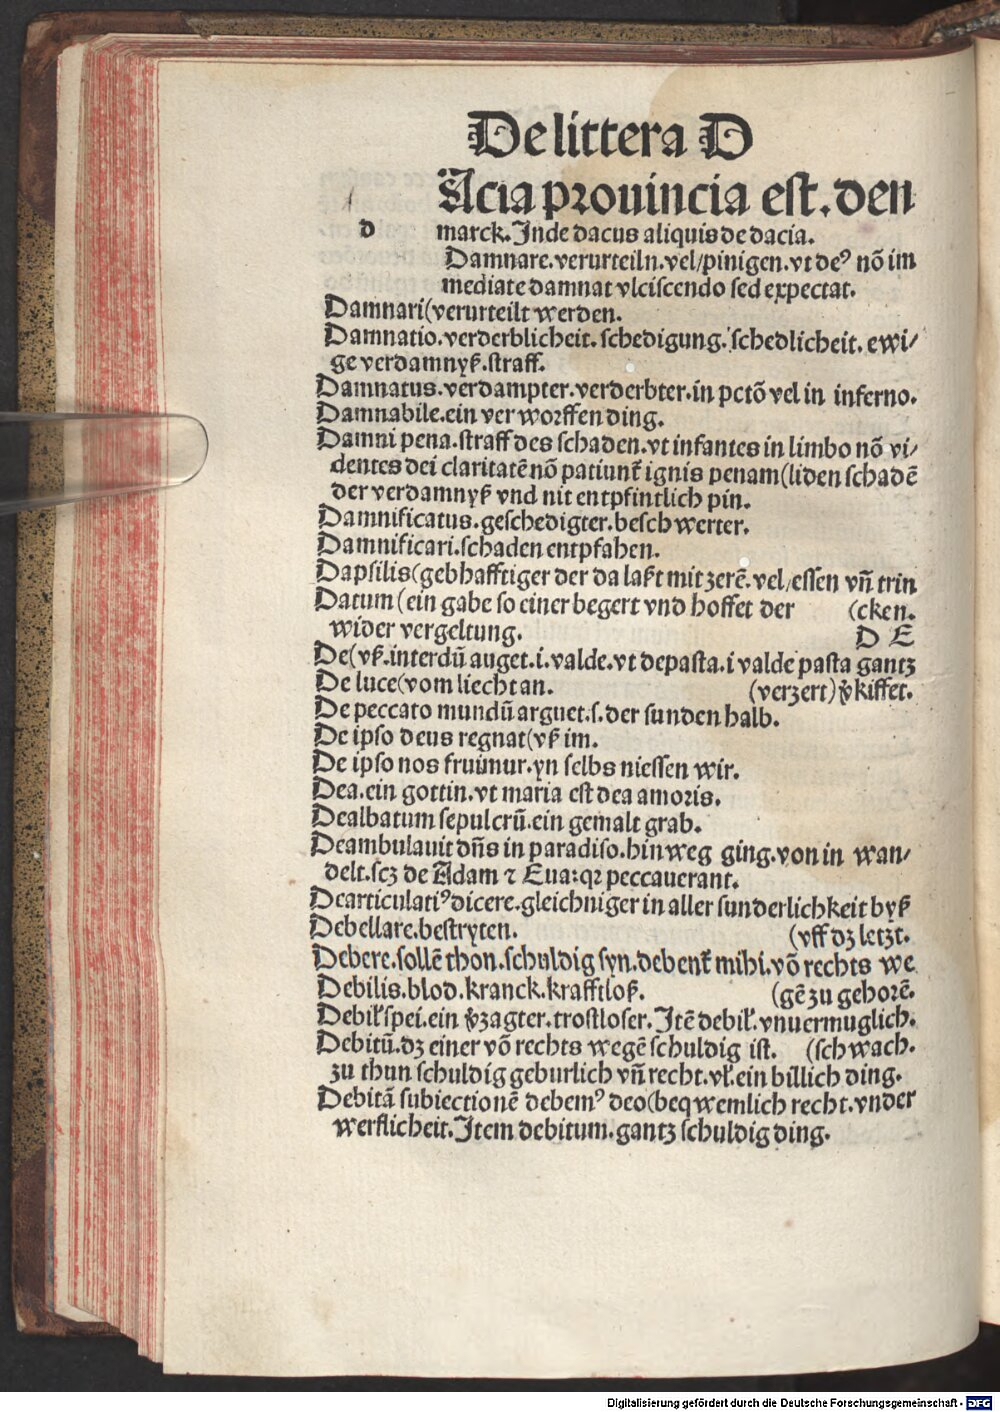 De littera D
Acia prouincia est. den
d marck. Inde dacus aliquis de dacia.
Damnare. verurteiln. vel/pinigen. vt deꝰ nõ im
mediate damnat vlciscendo sed expectat.
Damnari(verurteilt werden.
Damnatio. verderblicheit. schedigung. schedlicheit. ewi/
ge verdamnyß. straff.
Damnatus. verdampter. verderbter. in pctõ vel in inferno.
Damnabile. ein verworffen ding.
Damni pena. straff des schaden. vt infantes in limbo nõ vi/
dentes dei claritatẽ nõ patiunt᷑ ignis penam(liden schadẽ
der verdamnyß vnd nit entpfintlich pin.
Damnificatus. geschedigter. beschwerter.
Damnificari. schaden entpfahen.
Dapsilis(gebhafftiger der da laßt mit zerẽ. vel/essen vñ trin
Datum(ein gabe so einer begert vnd hoffet der (cken.
wider vergeltung. D E
De(vß. interdũ auget. i. valde. vt depasta. i valde pasta gantz
De luce(vom liecht an. (verzert) v̾kiffet.
De peccato mundũ arguet. s. der sunden halb.
De ipso deus regnat(vß im.
De ipso nos fruimur. yn selbs niessen wir.
Dea. ein gottin. vt maria est dea amoris.
Dealbatum sepulcrũ. ein gemalt grab.
Deambulauit dñs in paradiso. hinweg ging. von in wan/
delt. scꝫ de Adam ⁊ Eua: qꝛ peccauerant.
Dearticulatiꝰ dicere. gleichniger in aller sunderlichkeit byß
Debellare. bestryten. (vff dꝫ letzt.
Debere. sollẽ thon. schuldig syn. debent᷑ mihi. võ rechts we
Debilis. blod. kranck. krafftloß. (gẽ zu gehorẽ.
Debiłspei. ein v̾zagter. trostloser. Itẽ debił. vnuermuglich.
Debitũ. dꝫ einer võ rechts wegẽ schuldig ist. (schwach.
zu thun schuldig geburlich vñ recht. vł. ein billich ding.
Debitã subiectionẽ debemꝰ deo(beqwemlich recht. vnder
werflicheit. Item debitum. gantz schuldig ding.
Digitalisierung gefördert durch die Deutsche Forschungsgemeinschaft - DFG